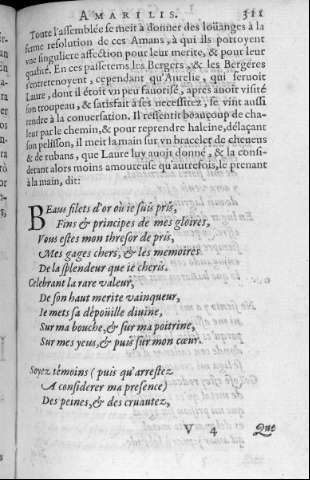 AMARILIS. 311
Toute l'assemblée se meit à donner des loüanges à la
ferme resolution de ces Amans, à qui ils portoyent
vne singuliere affection pour leur merite, & pour leur
qualité. En ces passetems les Bergers, & les Bergéres
s'entretenoyent, cependant qu'Aurelie, qui seruoit
Laure, dont il étoit vn peu fauorisé, apres auoir visité
son troupeau, & satisfait à ses necessitez, se vint aussi
rendre à la conuersation. Il ressentit beaucoup de cha-
leur par le chemin, & pour reprendre haleine, délaçant
son pelisson, il meit la main sur vn bracelet de cheueus
& de rubans, que Laure luy auoit donné, & la consi-
derant alors moins amoureuse qu'autrefois, le prenant
à la main, dit:
BEaus filets d'or où ie suis pris,
Fins & principes de mes gloires,
Vous estes mon thresor de pris,
Mes gages chers, & les memoires
De la splendeur que ie cheris.
Celebrant la rare valeur,
De son haut merite vainqueur,
Ie mets sa dépoüille diuine,
Sur ma bouche, & sur ma poitrine,
Sur mes yeus, & puis sur mon cœur.
Soyez témoins (puis qu'arrestez
A considerer ma presence)
Des peines, & des cruautez,
V 4 Que